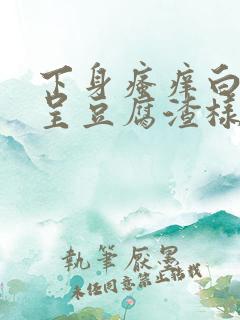 下身瘙痒白
呈豆腐渣樣
執筆厭墨
未经同意禁止转载